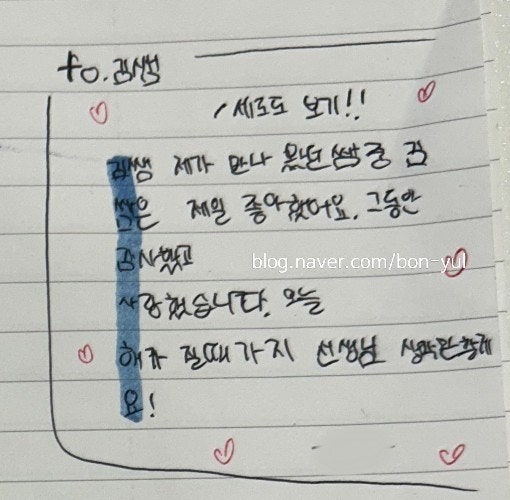 to. 김쌤
/세로도 보기!!
김쌤 제가 만나 봤던 쌤중 김
쌤은 제일 좋아했어요. 그동안
감사했고
blog.naver.com/bon-yul
사랑했습니다. 오늘
해가 질때가지 선생님 생각만할게
요!